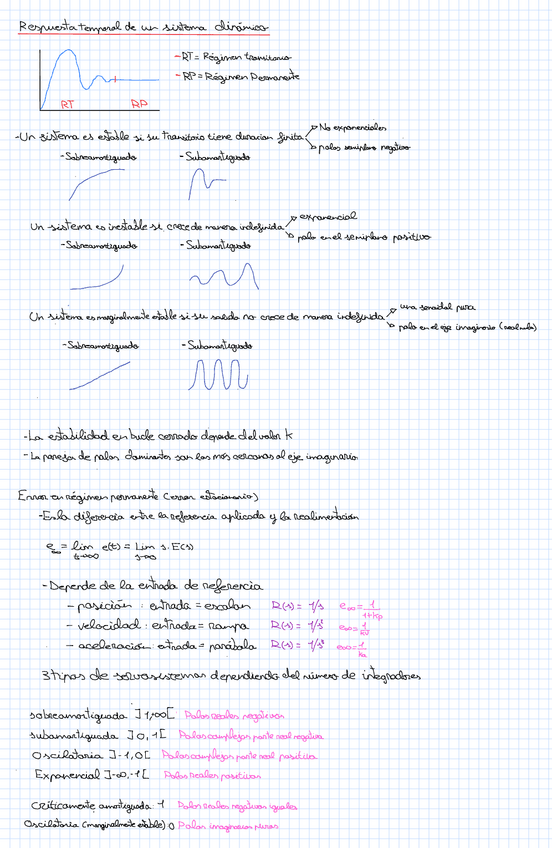 Respuesta temporal de un sistema dinámico
- RT = Régimen transitorio
- RP = Régimen Permanente
RT RP
- Un sistema es estable si su transitorio tiene duracion finita
No exponenciales
polos semiplano negativo
- Sobreamortiguado - Subamortiguado
Un sistema es inestable si crece de manera indefinida
exponencial
polo en el semiplano positivo
- Sobreamortiguado - Subamortiguado
Un sistema es marginalmente estable si su salida no crece de manera indefinida
una senoidal pura
polo en el eje imaginario (real nula)
- Sobreamortiguado - Subamortiguado
- La estabilidad en bucle cerrado depende del valor K
- La pareja de polos dominantes son los mas cercanos al eje imaginario.
Error en régimen permanente (error estacionario)
- Es la diferencia entre la referencia aplicada y la realimentación
e∞ = lim e(t) = Lim s·E(s)
t→∞ s→0
- Depende de la entrada de referencia
- posición: entrada = escalon R(s) = 1/s e∞ = 1/1+kp
- velocidad: entrada = rampa R(s) = 1/s² e∞ = 1/kv
- aceleración: entrada = parábola R(s) = 1/s³ e∞ = 1/ka
3 tipos de servosistemas dependiendo del número de integradores
sobreamortiguada ]1,∞[ Polos Reales negativos
subamortiguada ]0,1[ Polos complejos parte real negativa
Oscilatoria ]-1,0[ Polos complejos parte real positiva
Exponencial ]-∞,-1[ Polos Reales positivos
Críticamente amortiguada 1 Polos Reales negativos iguales
Oscilatoria (marginalmente estable) 0 Polos imaginarios puros